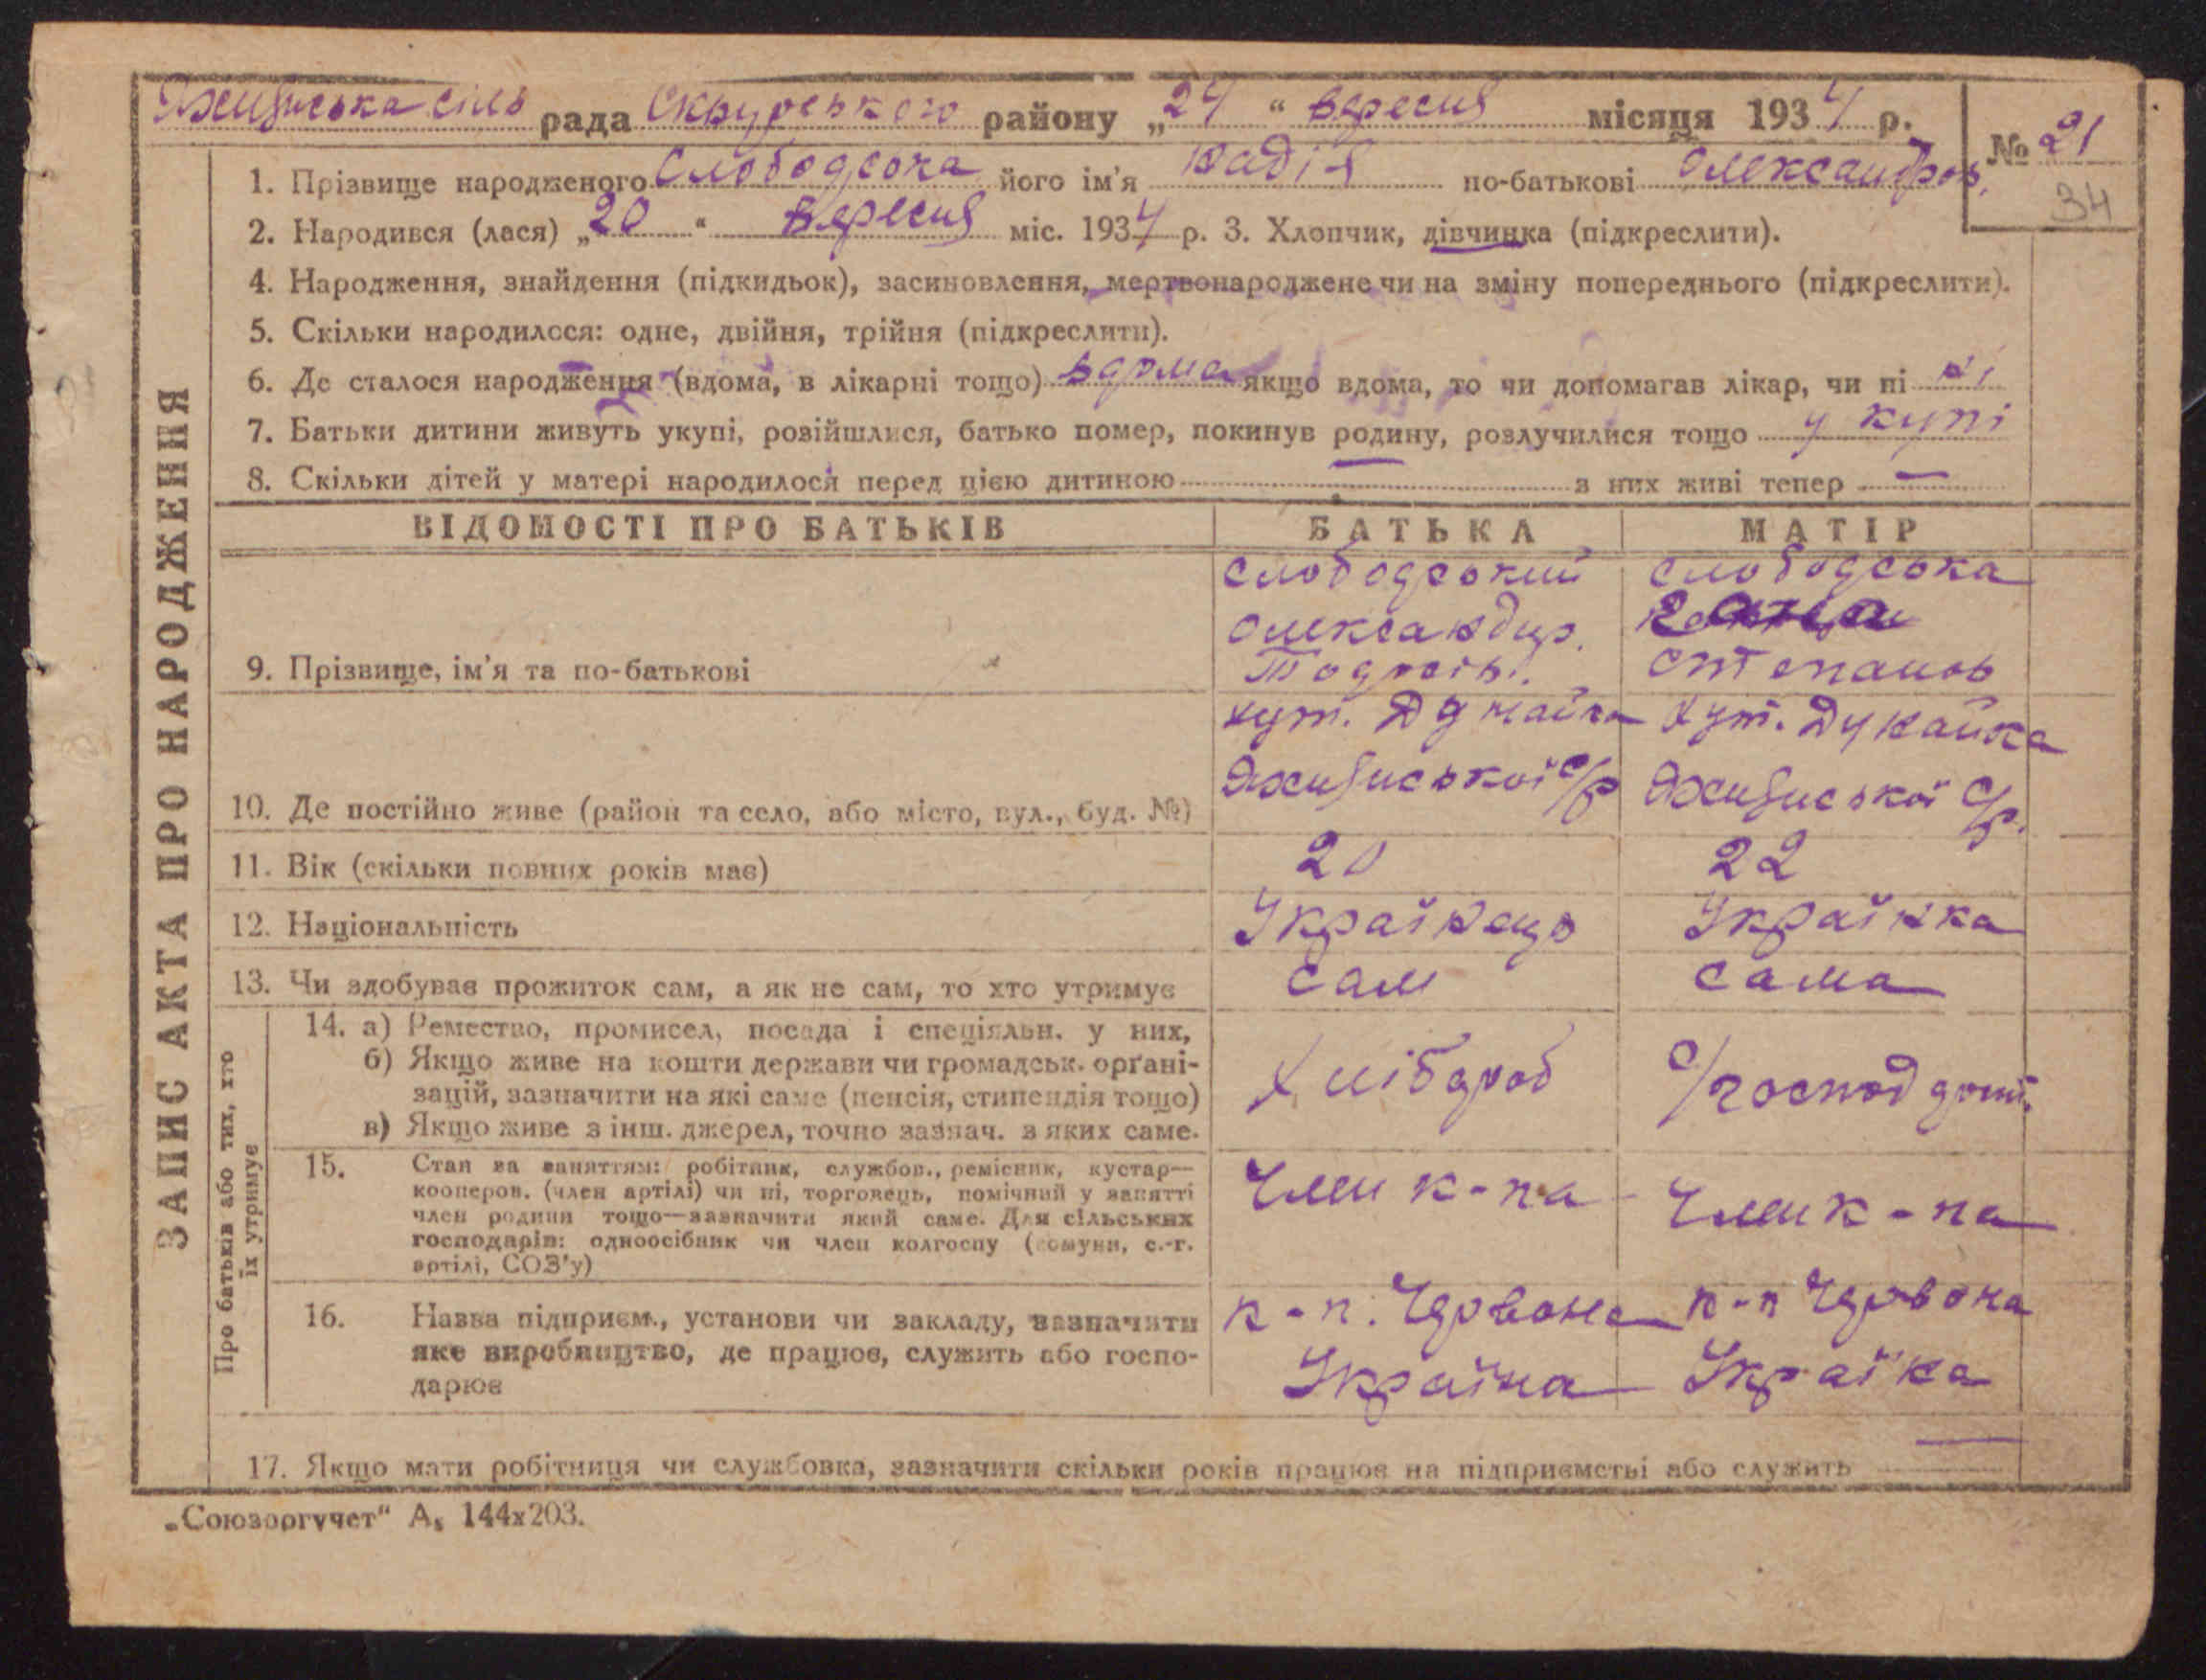 Яхнянська сіль рада Сквирського району „24“ вересня місяця 1934 р.
№ 21
34
1. Прізвище народженого Слободсока його ім'я Надія по-батькові Олександров.
2. Народився (лася) „20“ вересня міс. 1934 р. 3. Хлопчик, дівчинка (підкреслити).
4. Народження, знайдення (підкидьок), засиновлення, мертвонароджене чи на зміну попереднього (підкреслити).
5. Скільки народилося: одне, двійня, трійня (підкреслити).
6. Де сталося народження (вдома, в лікарні тощо) вдома якщо вдома, то чи допомагав лікар, чи ні ні
7. Батьки дитини живуть укупі, розійшлися, батько помер, покинув родину, розлучилися тощо у купі
8. Скільки дітей у матері народилося перед цією дитиною — з них живі тепер —
ЗАПИС АКТА ПРО НАРОДЖЕННЯ
ВІДОМОСТІ ПРО БАТЬКІВ БАТЬКА МАТІР
9. Прізвище, ім'я та по-батькові
Слободський
Олександир.
Тодосів.
Слободська
Степанов
10. Де постійно живе (район та село, або місто, вул., буд. №)
хут. Дунайка
с/р
хут. Дунайка
с/р.
11. Вік (скільки повних років має) 20 22
12. Національність Українець Українка
13. Чи здобував прожиток сам, а як не сам, то хто утримує сам сама
Про батьків або тих, хто
їх утримує
14. а) Ремество, промисел, посада і спеціяльн. у них,
б) Якщо живе на кошти держави чи громадськ. орґані-
зацій, зазначити на які саме (пенсія, стипендія тощо)
в) Якщо живе з інш. джерел, точно зазнач. з яких саме.
Хлібороб
с/господ дом.
15. Стан за заняттям: робітник, службов., ремісник, кустар—
кооперов. (член артілі) чи ні, торговець, помічний у занятті
член родини тощо—зазначити який саме. Для сільських
господарів: одноосібник чи член колгоспу (комуни, с.-г.
артілі, СОЗ'у)
Член к-па
Член к-па
16. Назва підприєм., установи чи закладу, зазначити
яке виробництво, де працює, служить або госпо-
дарює
к-п. Червона
Україна
к-п Червона
Україна
17. Якщо мати робітниця чи службовка, зазначити скільки років працює на підприємстві або служить —
„Союзоргучет“ А₅ 144х203.